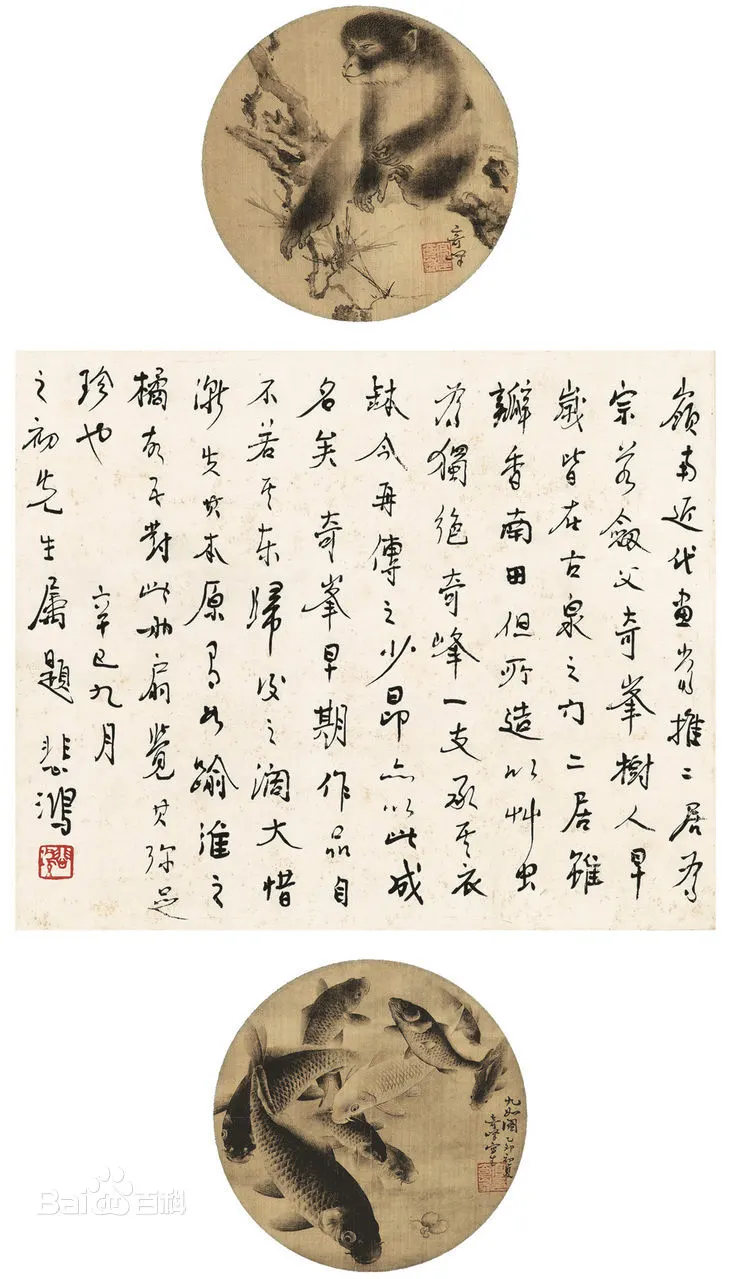 奇峰
嶺南近代畫嘗推二居為
宗若劍父奇峯樹人早
歲皆在古泉之門二居雖
瓣香南田但所造以艸虫
為獨絕奇峰一支承其衣
鉢今再傳之少昂亦以此成
名矣 奇峯早期作品自
不若其東歸後之濶大惜
漸失其本原有如踰淮之
橘故吾對此兩扇覺其弥足
珍也 辛巳九月
之初先生屬題 悲鴻
九如圖 乙卯初夏
奇峰寫生
Bai du 百科